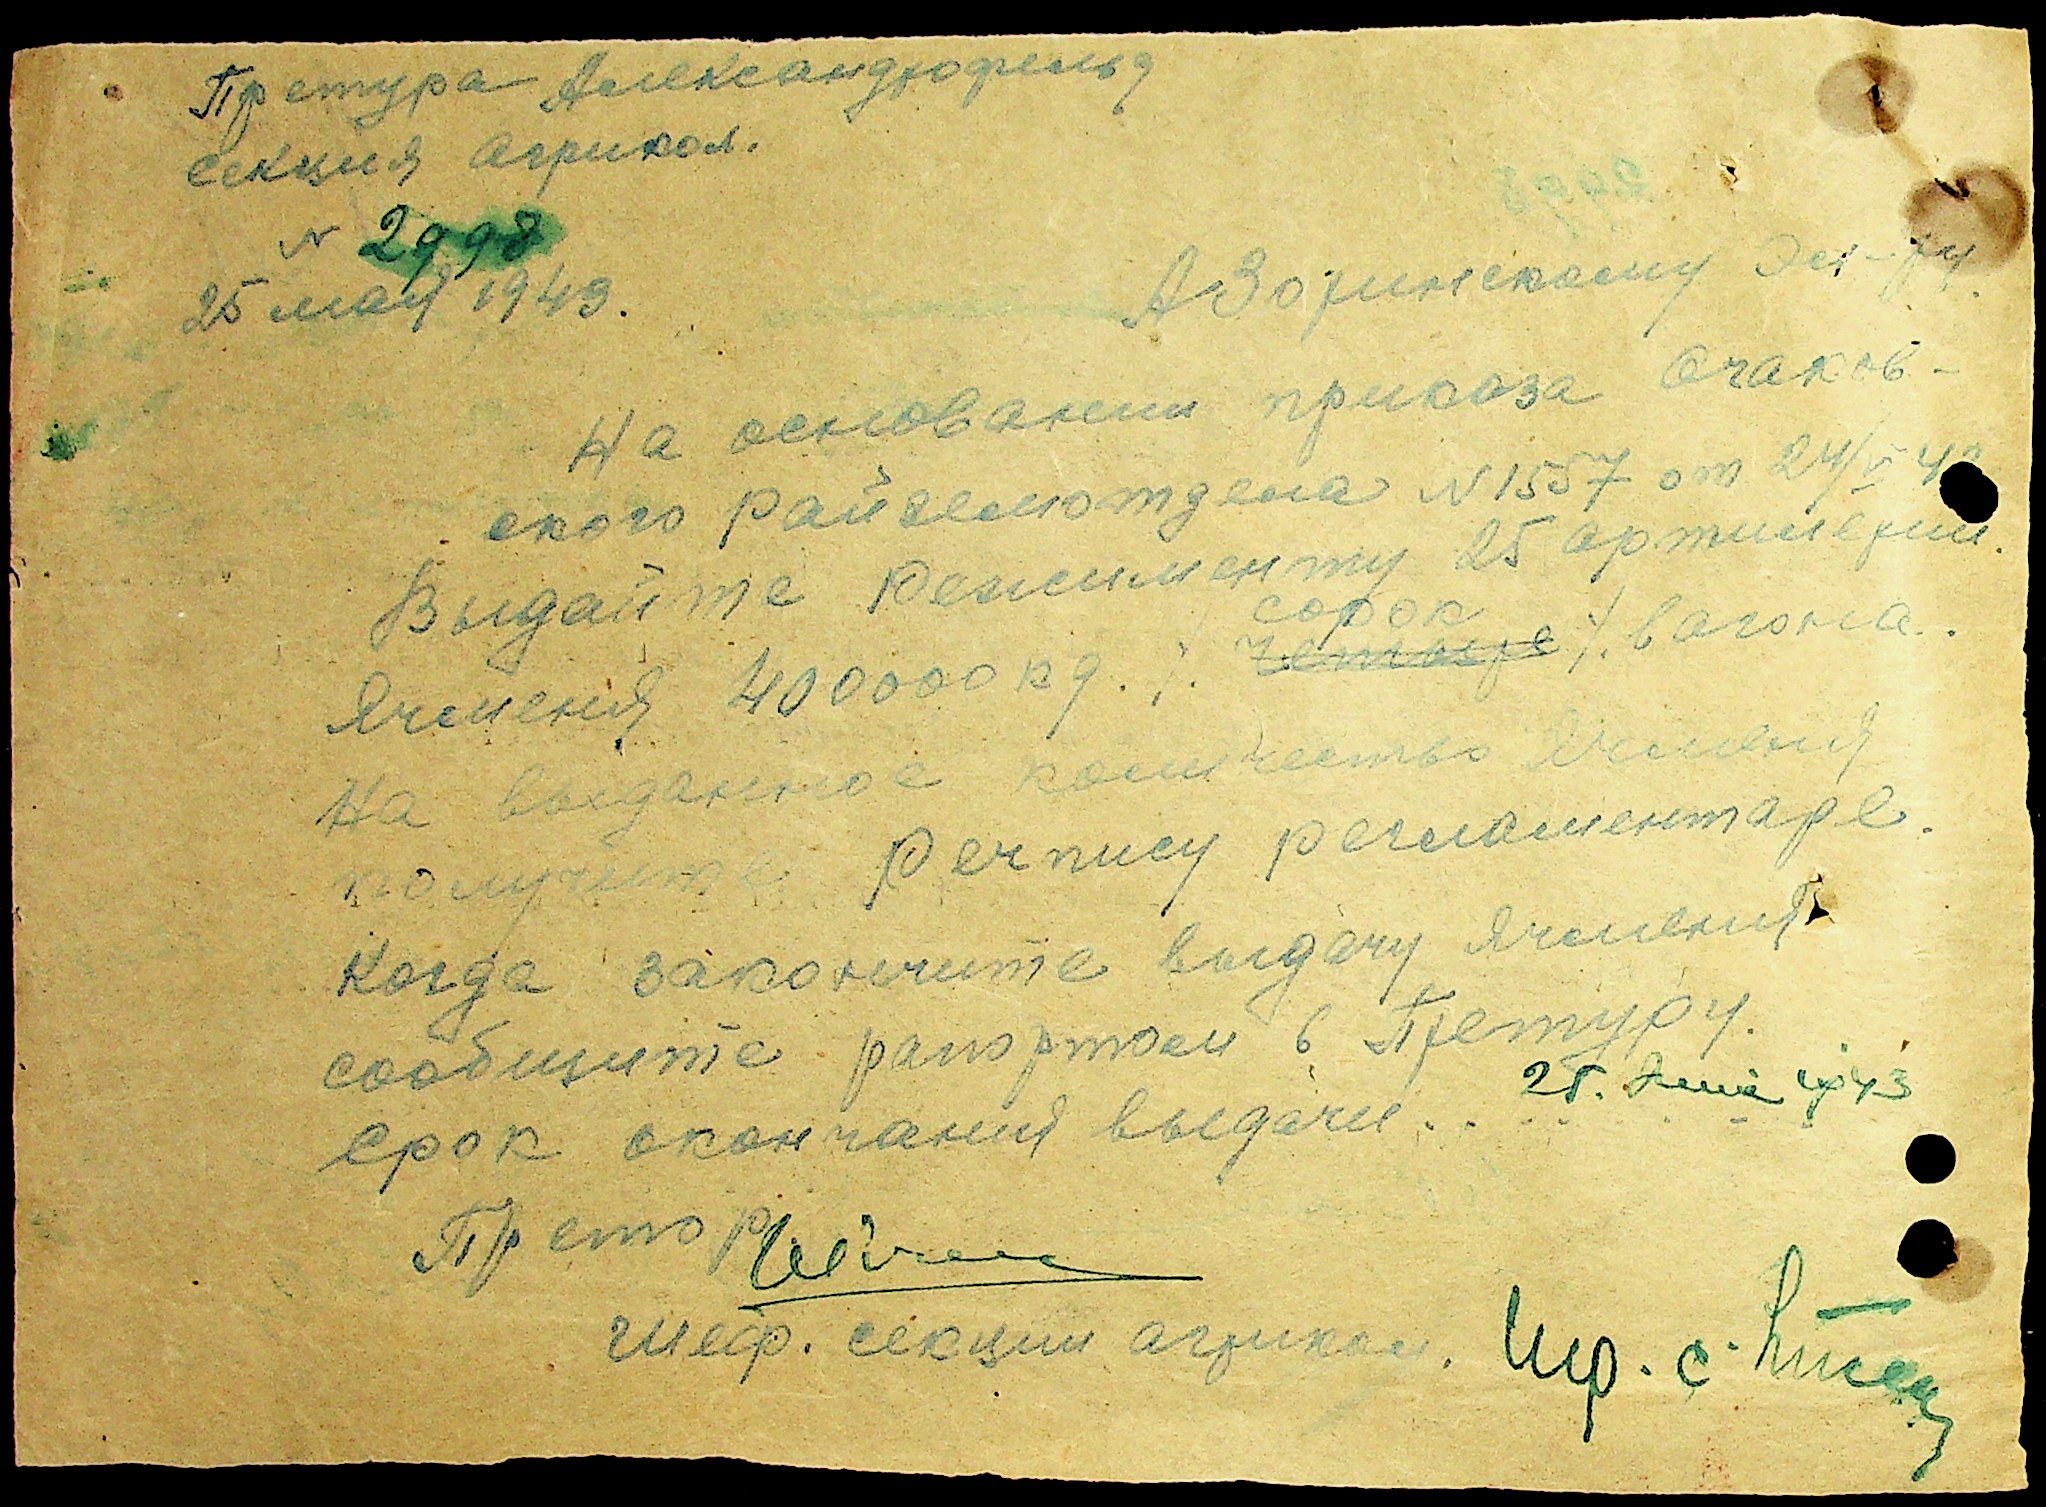 Претура Александрофельд
секция агрикол.
N 2998
25 мая 1943.
А Зоринскому
На основании приказа Очаков-
ского райземотдела N 1557 от 24/V 43
Выдайте Режименту 25 артилерии.
сорок
Ячменя 400000 кg. ∕. четыре ∕. вагона.
На выданное количество ячменя
получите Речпису регламентаре.
Когда закончите выдачу ячменя
сообщите рапортом в Претуру.
срок окончания выдачи . . 25. 1943
Претор
Шеф. секции агрикол.